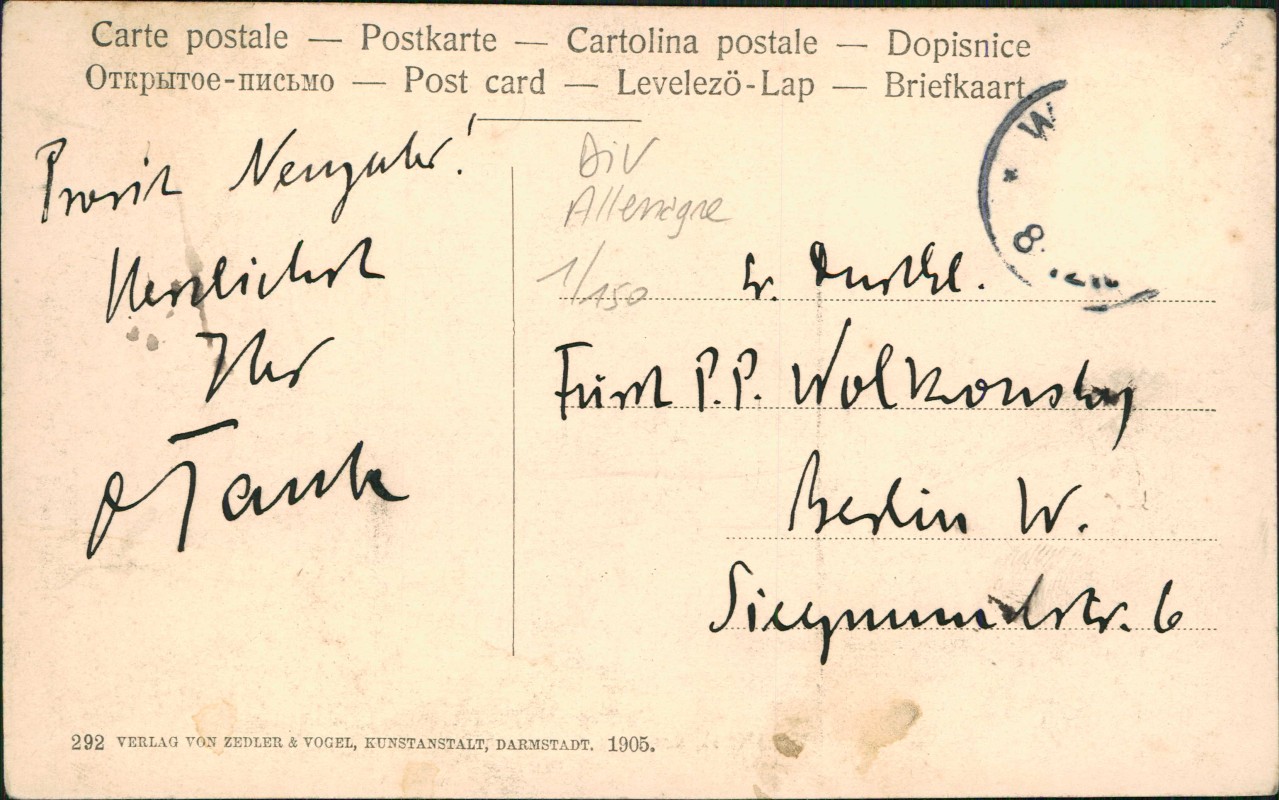 Carte postale — Postkarte — Cartolina postale — Dopisnice
Открытое-письмо — Post card — Levelezö-Lap — Briefkaart
Prosit Neujahr!
Herzlichst
Ihr
DIV
Allemagne
1/150
W
8
Sr. Durchl.
Fürst P.P. Wolkonsky
Berlin W.
Siegmundstr. 6
292 VERLAG VON ZEDLER & VOGEL, KUNSTANSTALT, DARMSTADT. 1905.